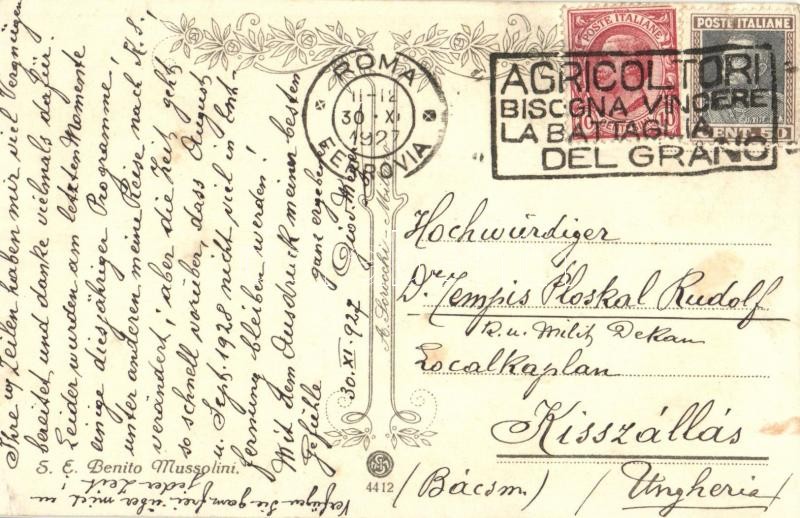 Ihre wg Zeilen haben mir viel Vergnügen
bereitet und danke vielmals dafür.
Leider wurden am letzten Momente
einige dies jähriger Programme,
unter anderen meine Reise nach K.S.,
verändert; aber die Zeit geht
so schnell vorüber, dass August
u. Sept. 1928 nicht viel in Ent-
fernung bleiben werden!
Mit dem Ausdruck meiner besten
Gefühle
ganz ergeben
Giov.
30. XI. 927
Verfügen Sie ganz frei über mich zu
jeder Zeit!
S. E. Benito Mussolini.
A. Scrocchi - Milano
4412
ROMA
11-12
30 · XI
1927
FERROVIA
AGRICOLTORI
BISOGNA VINCERE
LA BATTAGLIA
DEL GRANO
POSTE ITALIANE
POSTE ITALIANE
CENT. 50
Hochwürdiger
Dr. Tempis Ploskal Rudolf
k. u. Milit Dekan
Localkaplan
Kisszállás
(Bácsm.) (Ungheria)